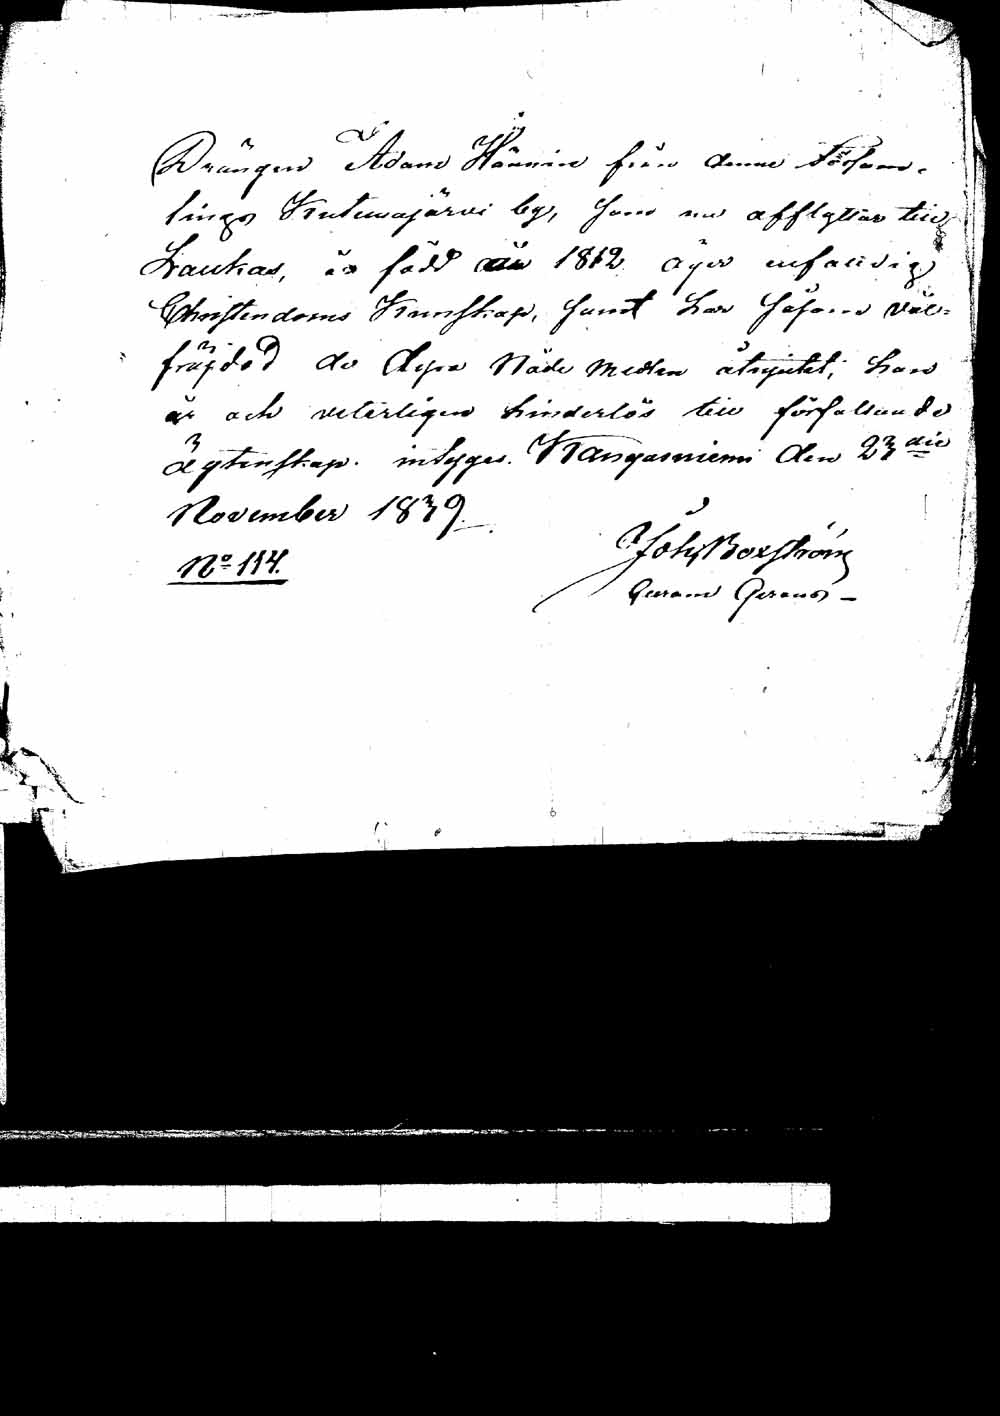 Drängen Adam Hännin från denne Församlings Kutemajärvi by, som nu afflyttar till
Laukas, är född år 1812 äger enfaldig
Christendoms Kunskap, samt har såsom väl-
fräjdad de dyra Nåde medlen åtnjutit; han
är och veterligen hinderlös till förfallande
ägtenskap. intyges. Kangasniemi den 23die
November 1839.
Joh. Boxström
No 114.